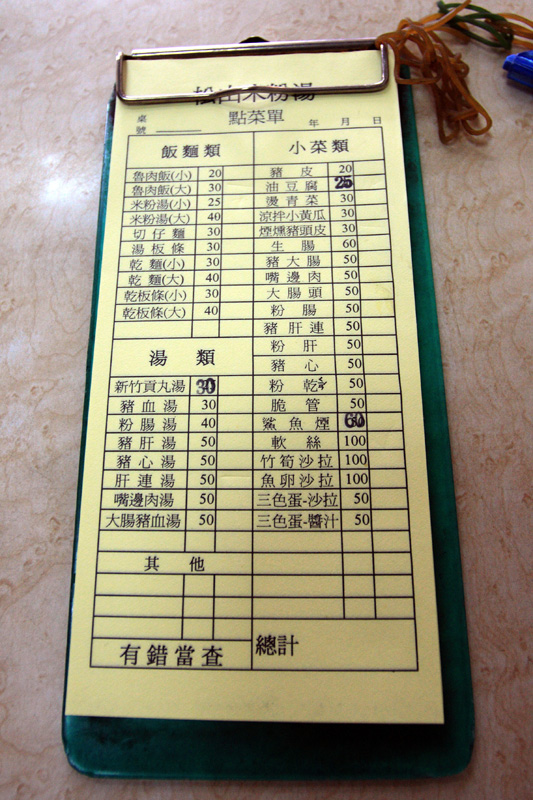 松山米粉湯
點菜單
桌號 年 月 日
飯麵類
魯肉飯(小) 20
魯肉飯(大) 30
米粉湯(小) 25
米粉湯(大) 40
切仔麵 30
湯板條 30
乾麵(小) 30
乾麵(大) 40
乾板條(小) 30
乾板條(大) 40
湯類
新竹貢丸湯 30
豬血湯 30
粉腸湯 40
豬肝湯 50
豬心湯 50
肝連湯 50
嘴邊肉湯 50
大腸豬血湯 50
其他
有錯當查
小菜類
豬皮 20
油豆腐 25
燙青菜 30
涼拌小黃瓜 30
煙燻豬頭皮 30
生腸 60
豬大腸 50
嘴邊肉 50
大腸頭 50
粉腸 50
豬肝連 50
粉肝 50
豬心 50
粉乾 50
脆管 50
鯊魚煙 60
軟絲 100
竹筍沙拉 100
魚卵沙拉 100
三色蛋-沙拉 50
三色蛋-醬汁 50
總計